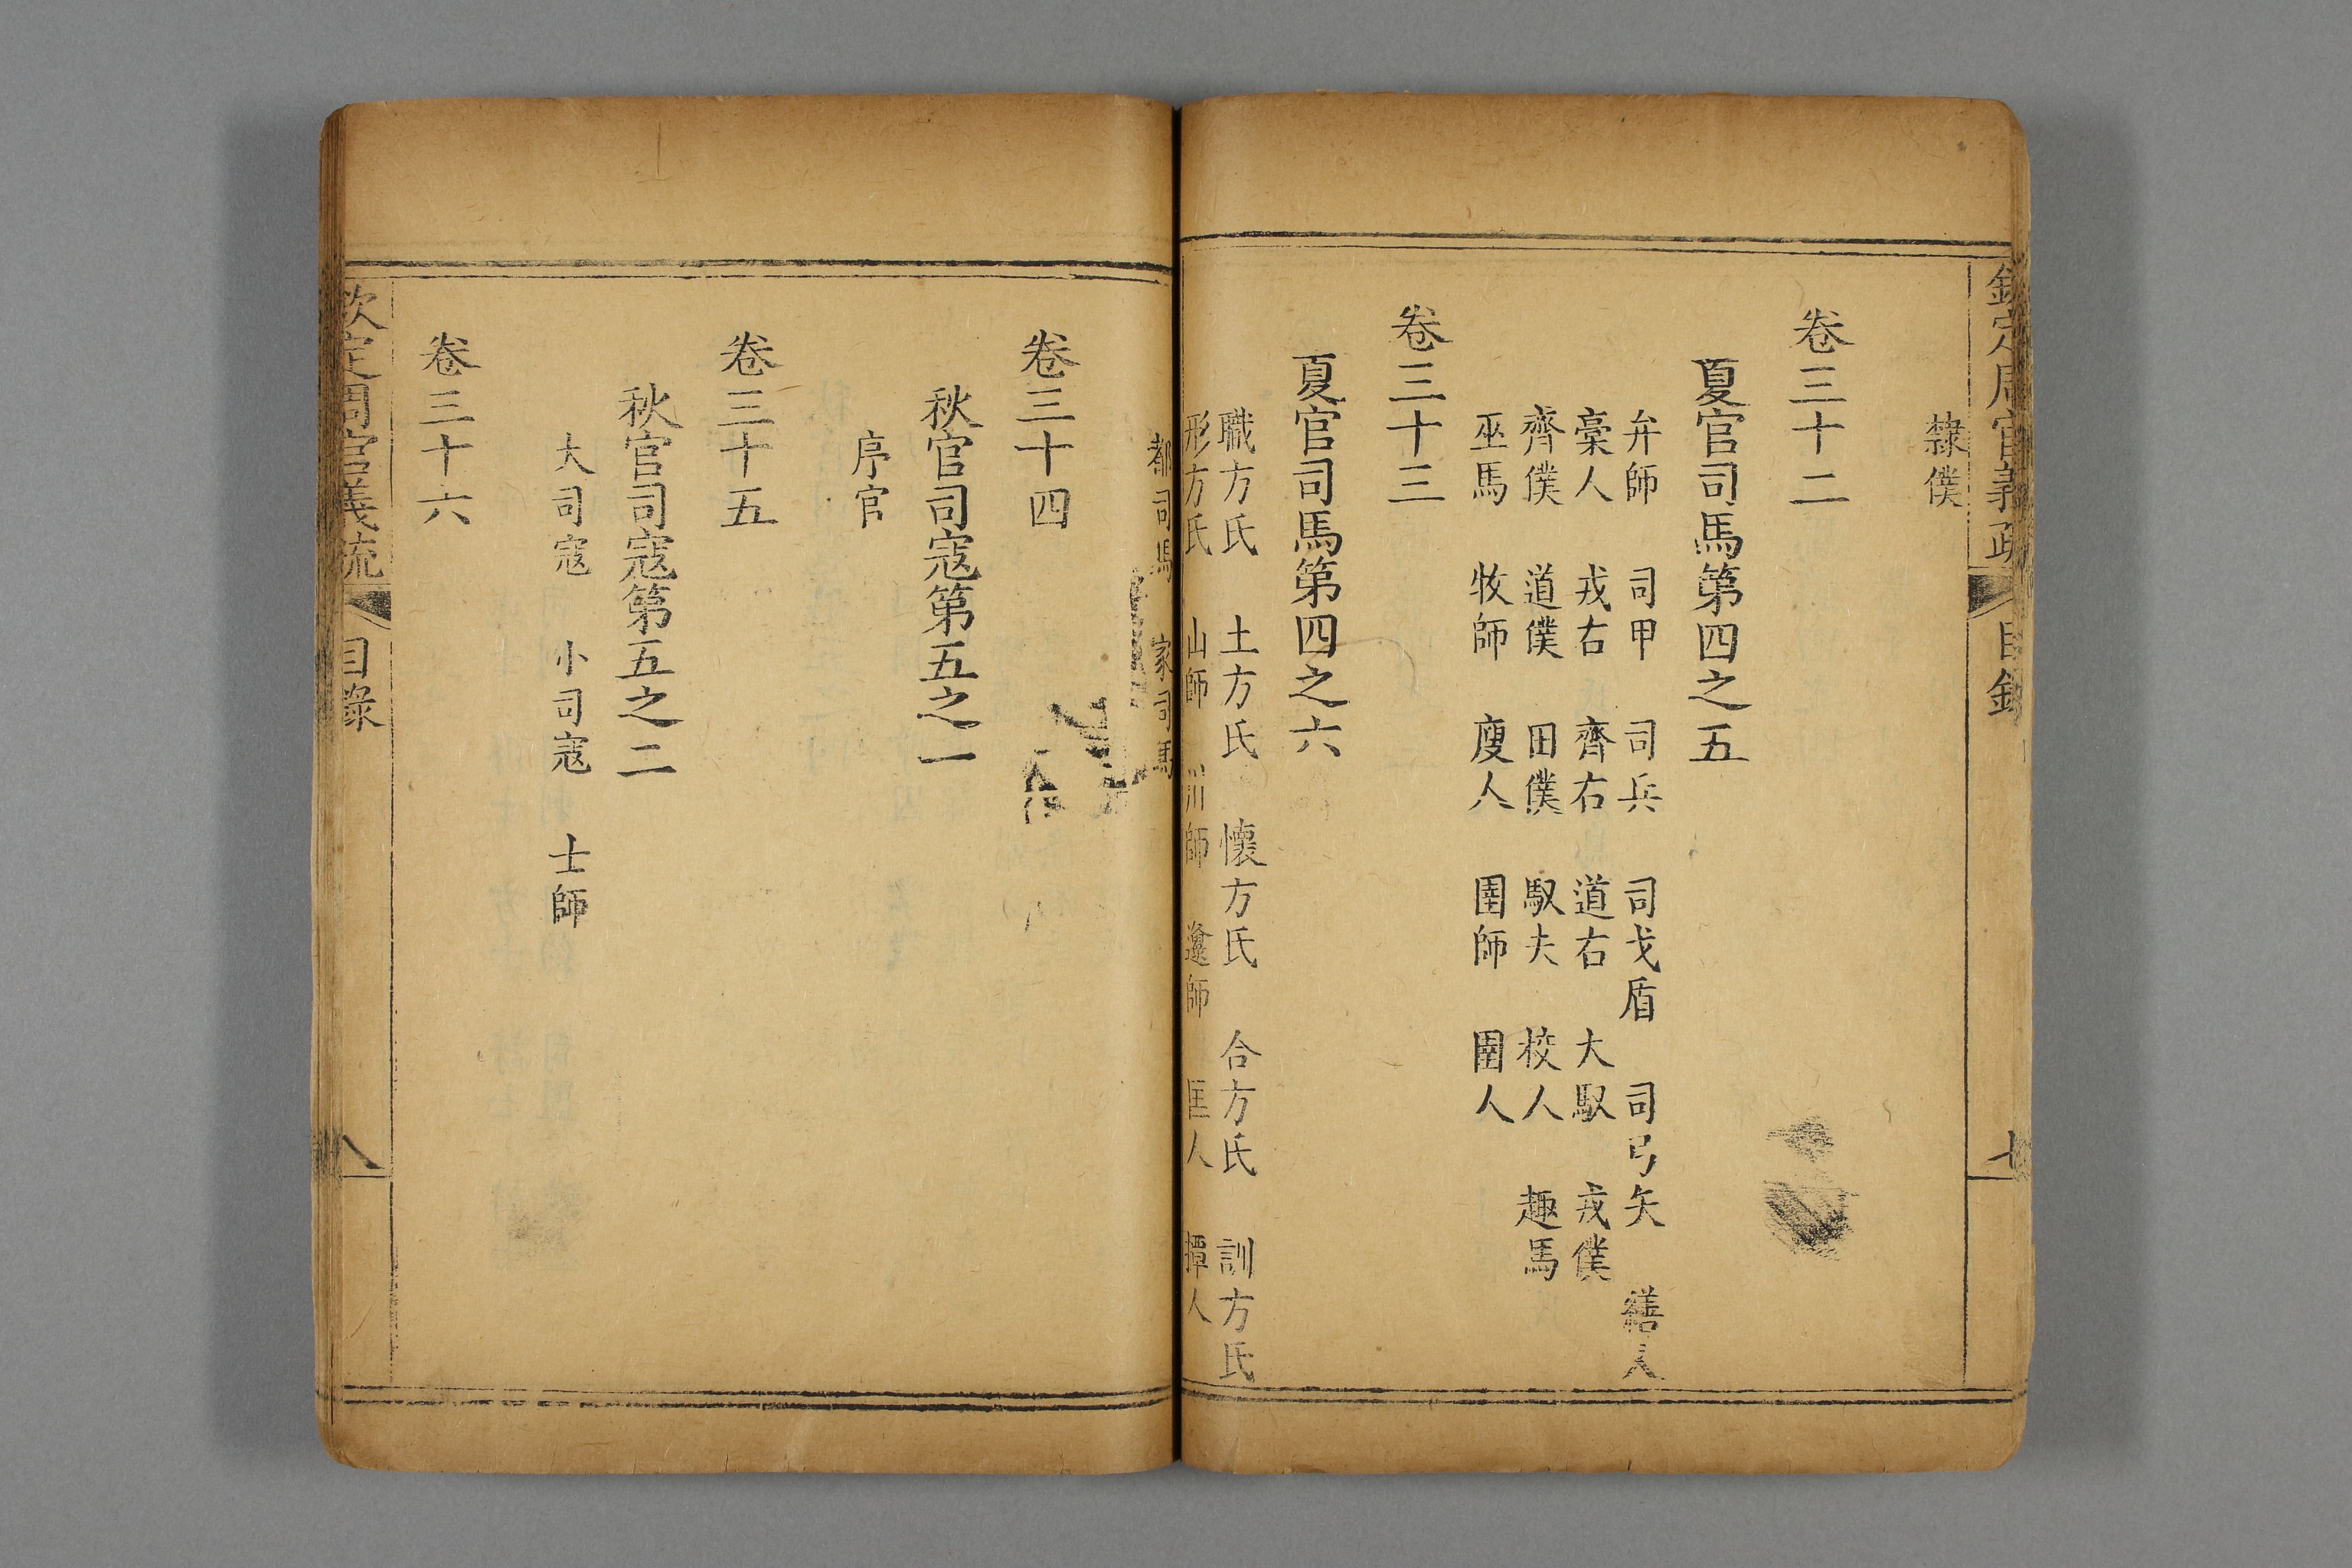 欽定周官義疏 目錄 七
隸僕
卷三十二
夏官司馬第四之五
弁師 司甲 司兵 司戈盾 司弓矢 繕人
槀人 戎右 齊右 道右 大馭 戎僕
齊僕 道僕 田僕 馭夫 校人 趣馬
巫馬 牧師 廋人 圉師 圉人
卷三十三
夏官司馬第四之六
職方氏 土方氏 懷方氏 合方氏 訓方氏
形方氏 山師 川師 邍師 匡人 撢人
都司馬 家司馬
卷三十四
秋官司寇第五之一
序官
卷三十五
秋官司寇第五之二
大司寇 小司寇 士師
卷三十六
欽定周官義疏 目錄 八